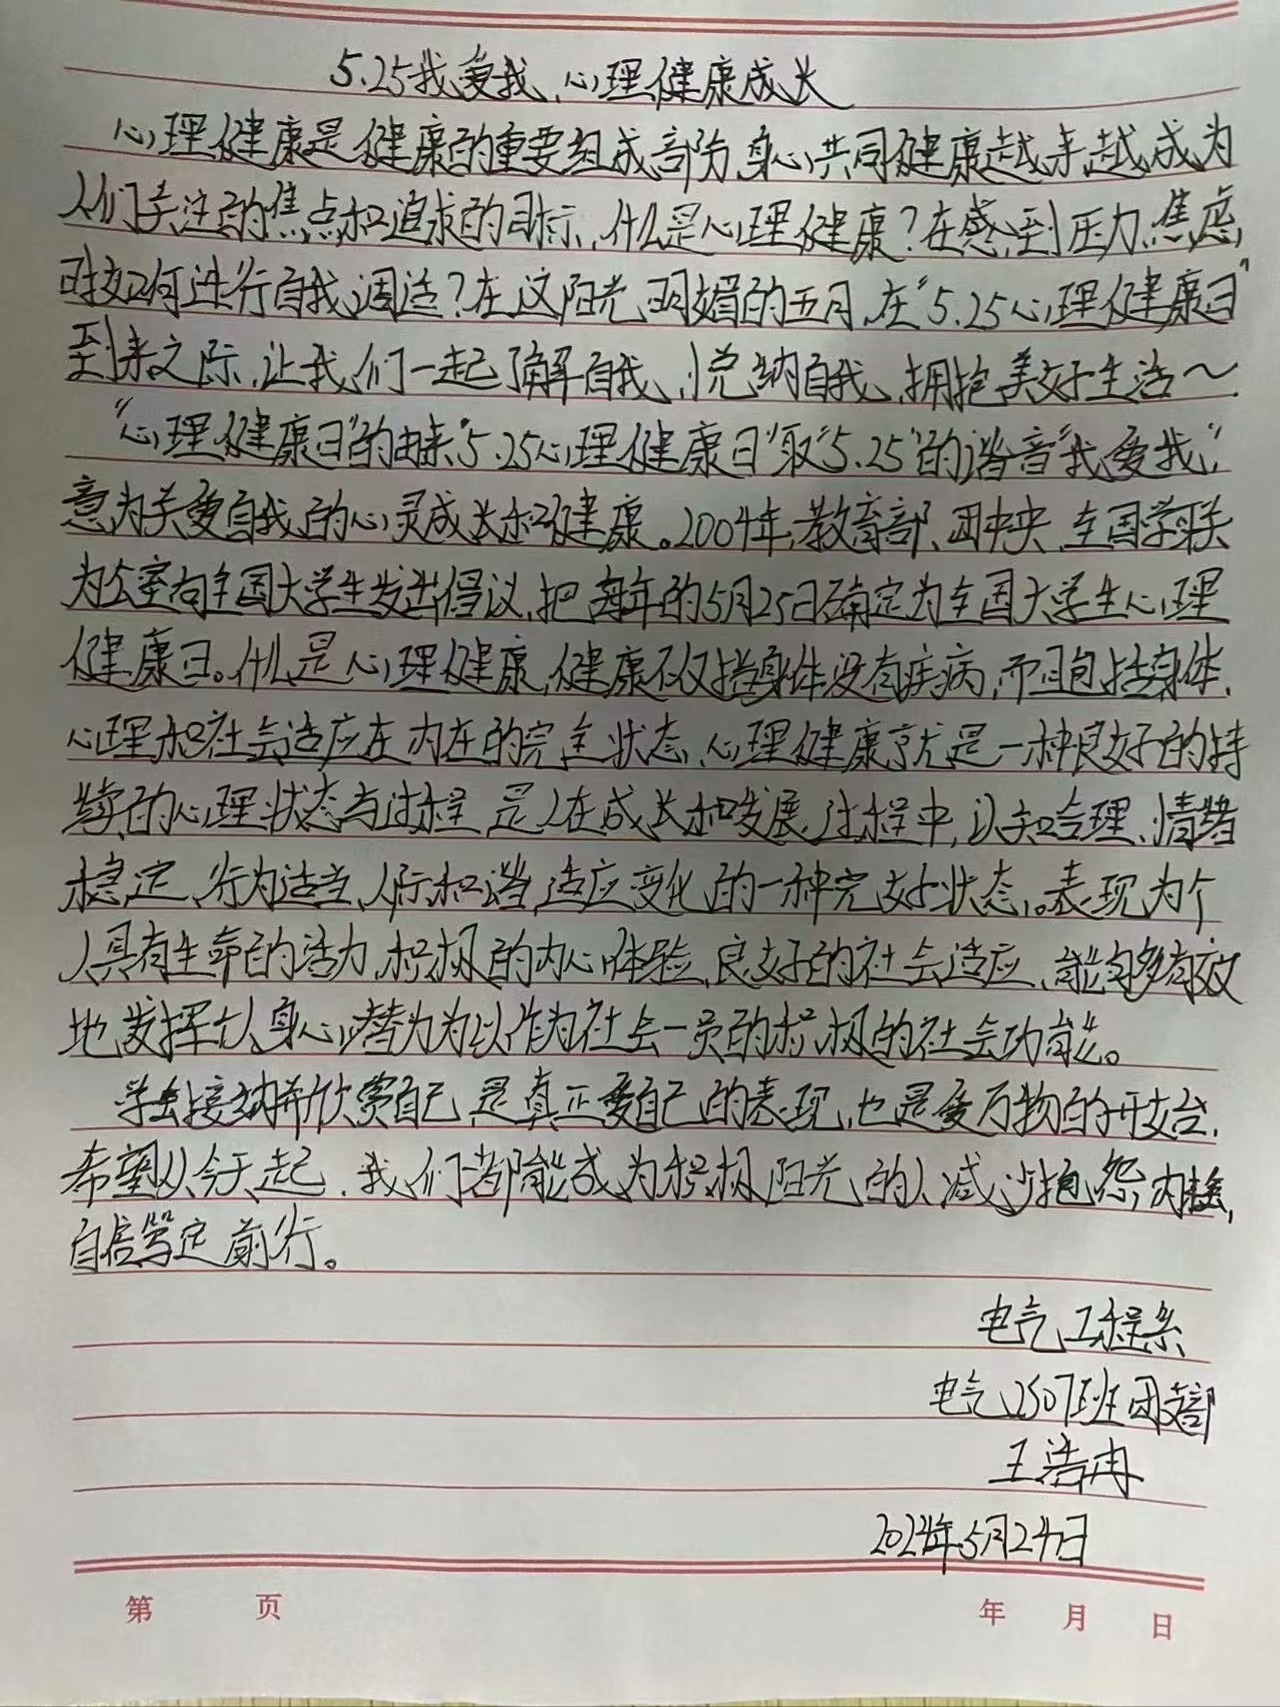 5.25我爱我,心理健康成长
心理健康是健康的重要组成部分,身心共同健康越来越成为
人们关注的焦点和追求的目标,什么是心理健康?在感到压力、焦虑
时如何进行自我调适?在这阳光明媚的五月,在“5.25心理健康日”
到来之际,让我们一起了解自我、悦纳自我、拥抱美好生活～
“心理健康日”的由来“5.25心理健康日”取“5.25”的谐音“我爱我”
意为关爱自我的心灵成长和健康。2004年,教育部、团中央、全国学联
办公室向全国大学生发出倡议,把每年的5月25日确定为全国大学生心理
健康日。什么是心理健康,健康不仅指身体没有疾病,而且包括身体、
心理和社会适应在内在的完全状态,心理健康就是一种良好的持
续的心理状态与过程,是人在成长和发展过程中,认知合理、情绪
稳定、行为适当、人际和谐,适应变化的一种完好状态。表现为个
人具有生命的活力,积极的内心体验,良好的社会适应,能够有效
地发挥以身心潜力为以作为社会一员的积极的社会功能。
学会接纳并欣赏自己,是真正爱自己的表现,也是爱万物的开始,
希望从今天起,我们都能成为积极阳光的人减少抱怨,内耗,
自信笃定前行。
电气工程系
电气2307班团支部
王浩冉
2024年5月24日
第 页 年 月 日